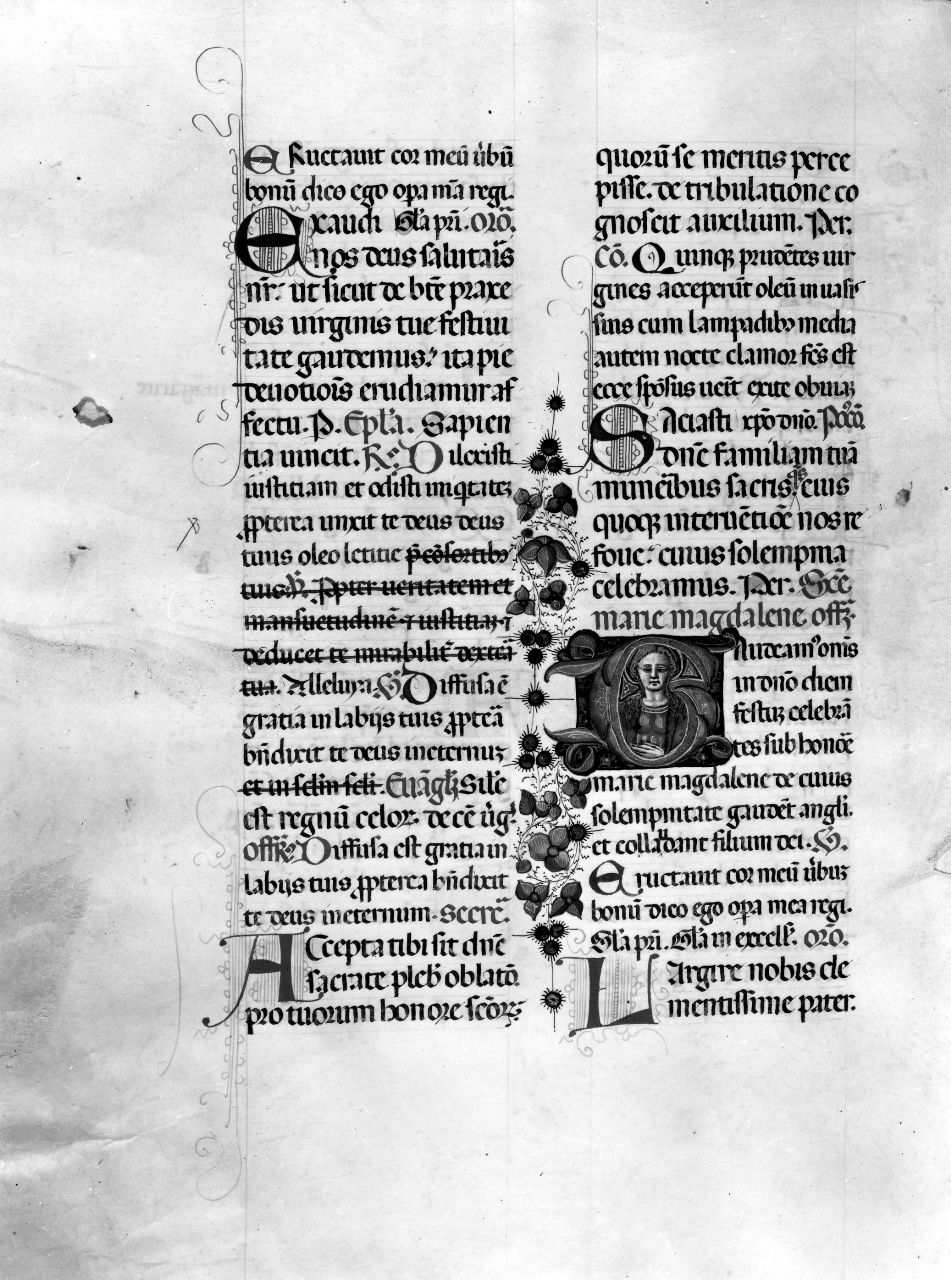 ERuctauit cor meū ūbū
bonū dico ego opa mā regi.
Exaudi Gl'a pri. orō.
nos deus salutaris
nr̄: ut sicut de btē praxe
dis uirginis tue festiui
tate gaudemus: ita pie
deuotiois erudiamur af
fectu. P. Epl'a. Sapien
tia uincit. R. Dilexisti
iustitiam et odisti iniqtatez
ꝓpterea unxit te deus deus
tuus oleo letitie p̄ cōsortibꝰ
tuis. V. Propter ueritatem et
mansuetudinē ⁊ iustitiaz ⁊
deducet te mirabilit̄ dextera
tua. Alleluya. V. Diffusa ē
gratia in labijs tuis ꝓpteā
bn̄dixit te deus ineternuz
et in sclm scli. Euāgl'z Sil'e
est regnū celoꝝ decē ūg̣ꝰ
Offr̄. Diffusa est gratia in
labijs tuis ꝓpterea bn̄dixit
te deus ineternum. Secre.
ACcepta tibi sit dn̄e
sacrate pleb' oblatō
pro tuorum honore scōꝝ:
quorū se meritis perce
pisse. de tribulatione co
gnoscit auxilium. Per.
Cō. Quinqꝫ prudētes uir
gines acceperūt oleū in uasis
suis cum lampadibꝰ media
autem nocte clamor fcs est
ecce spōsus uēit exite obuiaz
SAciasti xpō dn̄o. Pꝰcōa
dn̄e familiam tuā
munēibus sacris. eius
quoqꝫ interuētiōe nos re
foue: cuius solempnia
celebramus. Per. Scē
marie magdalene. offz.
Gaudeamꝰ omīs
in dn̄o diem
festuz celebrā
tes sub honōe
marie magdalene de cuius
solempnitate gaudēt angli.
et collaudant filium dei. V.
Eructauit cor meū ūbuz
bonū dico ego opa mea regi.
Gl'a pri. Gl'a in excels'. orō.
LArgire nobis cle
mentissime pater.